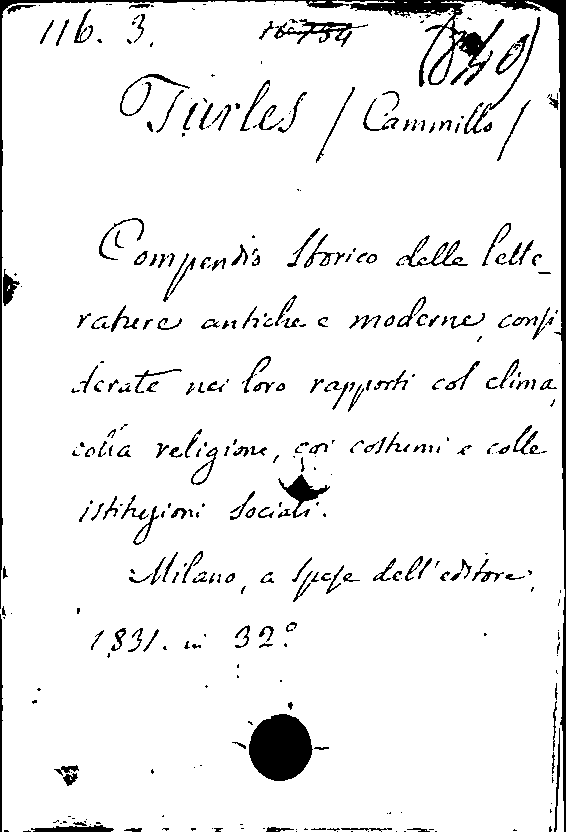 116. 3.
Turles / Cammillo /
Compendio Storico delle lette-
rature antiche e moderne, consi-
derate nei loro rapporti col clima,
colla religione, coi costumi e colle
istituzioni sociali.
Milano, a spese dell'editore,
1831. in 32.º